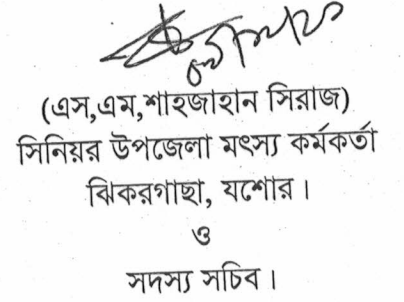 (এস,এম,শাহজাহান সিরাজ)
সিনিয়র উপজেলা মৎস্য কর্মকর্তা
ঝিকরগাছা, যশোর।
ও
সদস্য সচিব।